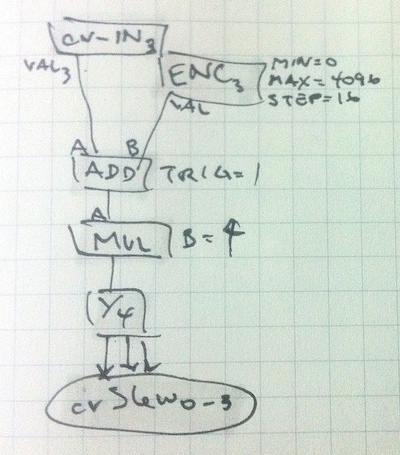 cv-IN3
VAL3
ENC3
MIN=0
MAX=4096
STEP=16
VAL
A B
ADD TRIG=1
A
MUL B=4
Y4
cvSlew0-3